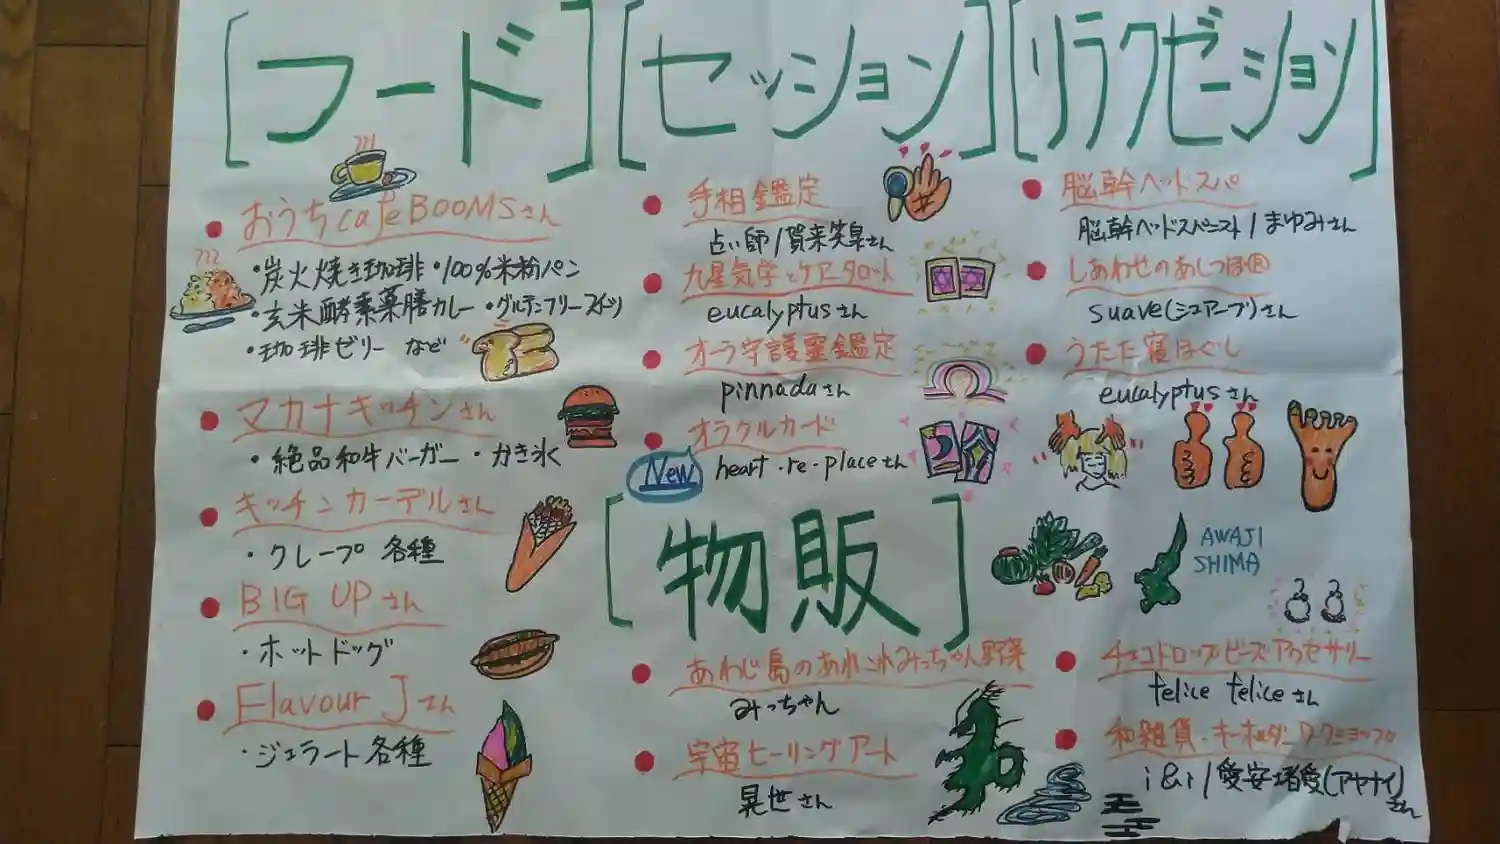 [フード]
おうちcafeBOOMSさん
・炭火焼き珈琲・100%米粉パン
・玄米酵素薬膳カレー・グルテンフリースイーツ
・珈琲ゼリー など
マカナキッチンさん
・絶品和牛バーガー・かき氷
キッチンカーデルさん
・クレープ 各種
BIG UPさん
・ホットドッグ
Flavour Jさん
・ジェラート各種
[セッション]
手相鑑定
占い師/賀来笑泉さん
九星気学とケアタロット
eucalyptusさん
オーラ守護霊鑑定
pinnadaさん
オラクルカード
New
heart・re・placeさん
[リラクゼーション]
脳幹ヘッドスパ
脳幹ヘッドスパニスト/まゆみさん
しあわせのあしつぼ®
suave(シュアーブ)さん
うたた寝ほぐし
eucalyptusさん
[物販]
AWAJI
SHIMA
あわじ島のあれこれみっちゃん野菜
みっちゃん
宇宙ヒーリングアート
晃世さん
チェコドロップ・ビーズアクセサリー
felice feliceさん
和雑貨・キーホルダーワークショップ
i&i/愛安堵愛(アヤナイ)
さん